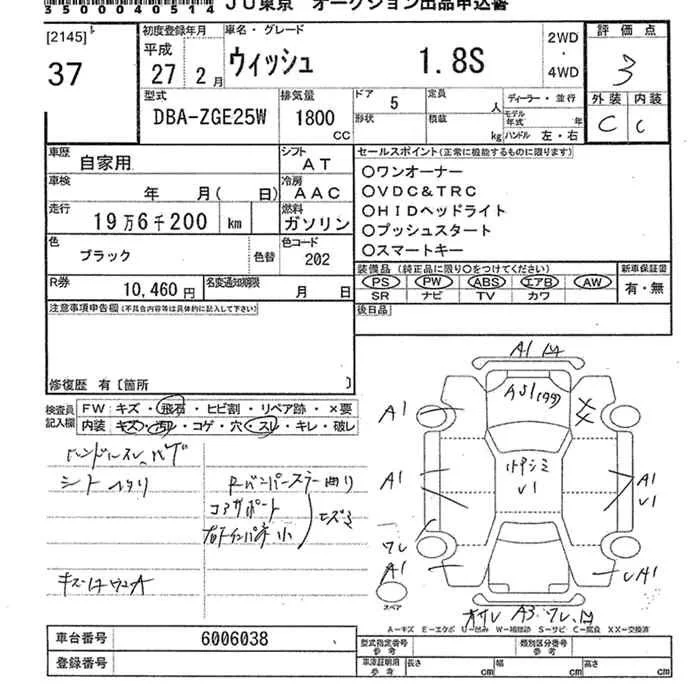 35000405 14 JU東京 オークション出品申込書
[2145]
37
初度登録年月
平成
27 2月
車名・グレード
ウィッシュ 1.8S
2WD
・
4WD
評価点
3
外装 内装
C C
型式
DBA-ZGE25W
排気量
1800
CC
ドア 5
形状
定員 人
積載 kg
ディーラー・並行
モデル年式 年
ハンドル 左・右
車歴 自家用
シフト AT
車検 年 月( 日)
冷房 AAC
走行 19万6千200 km
燃料 ガソリン
色 ブラック 色替
色コード 202
R券 10,460円
名変通知期限 月 日
セールスポイント(正常に機能するものに限ります)
○ワンオーナー
○VDC&TRC
○HIDヘッドライト
○プッシュスタート
○スマートキー
装備品(純正品に限り○をつけてください)
PS PW ABS エアB AW
SR ナビ TV カワ
新車保証書
有・無
後日品
注意事項申告欄(不具合内容等は具体的に記入して下さい)
修復歴 有〔箇所 〕
検査員記入欄
FW:キズ・飛石・ヒビ割・リペア跡・×要
内装:キズ・汚れ・コゲ・穴・スレ・キレ・破レ
ハンドルスレ、ハゲ
シートヘタリ
Rバンパーステー曲り
コアサポート
右インパネ小
キズ
A1
A1
A1
A1
A1
V1
V1
A1
スペア
A3
A-キズ E-エクボ U-凹み W-補修跡 S-サビ C-腐食 XX-交換済
車台番号 6006038
登録番号
型式指定番号 参考
類別区分番号 参考
車庫証明用 参考
長さ cm
幅 cm
高さ cm